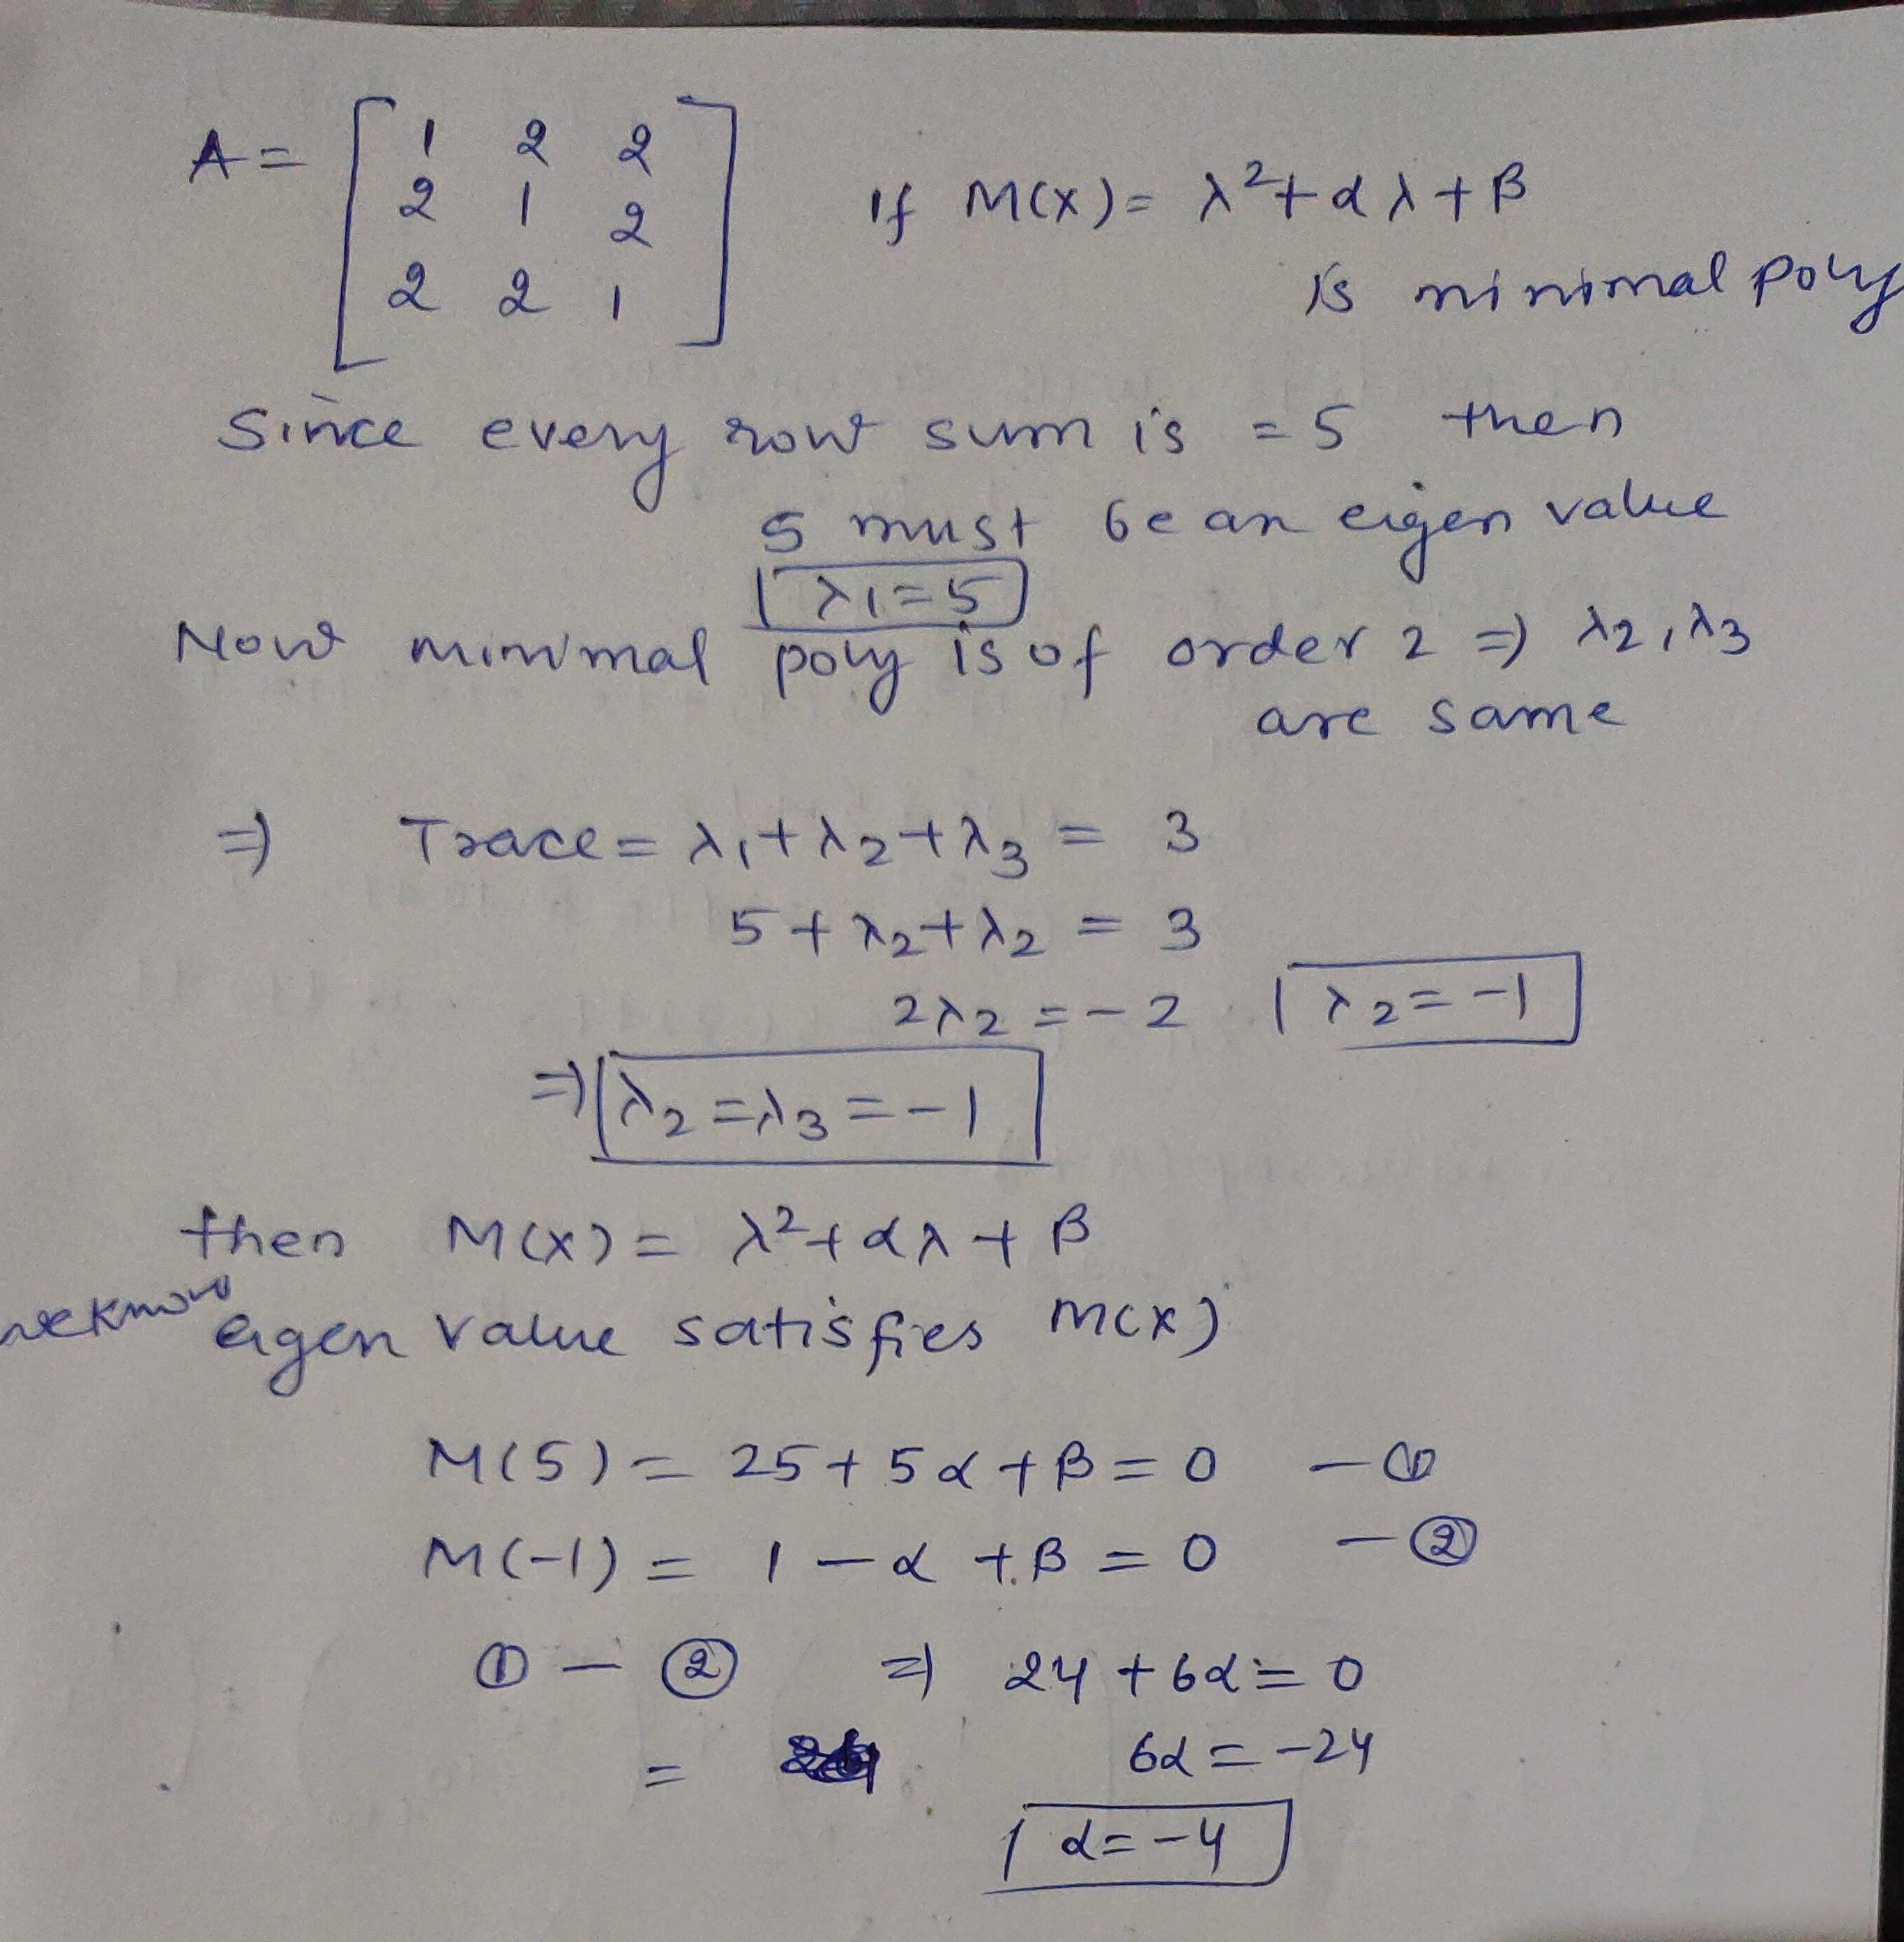 A = [ 1 2 2
2 1 2
2 2 1 ]
If M(x) = λ² + αλ + β
is minimal poly
Since every row sum is = 5 then
5 must be an eigen value
λ1 = 5
Now minimal poly is of order 2 ⇒ λ2, λ3
are same
⇒ Trace = λ1 + λ2 + λ3 = 3
5 + λ2 + λ2 = 3
2λ2 = -2 λ2 = -1
⇒ λ2 = λ3 = -1
then M(x) = λ² + αλ + β
we know eigen value satisfies M(x)
M(5) = 25 + 5α + β = 0 — ①
M(-1) = 1 - α + β = 0 — ②
① - ② ⇒ 24 + 6α = 0
= 6α = -24
α = -4